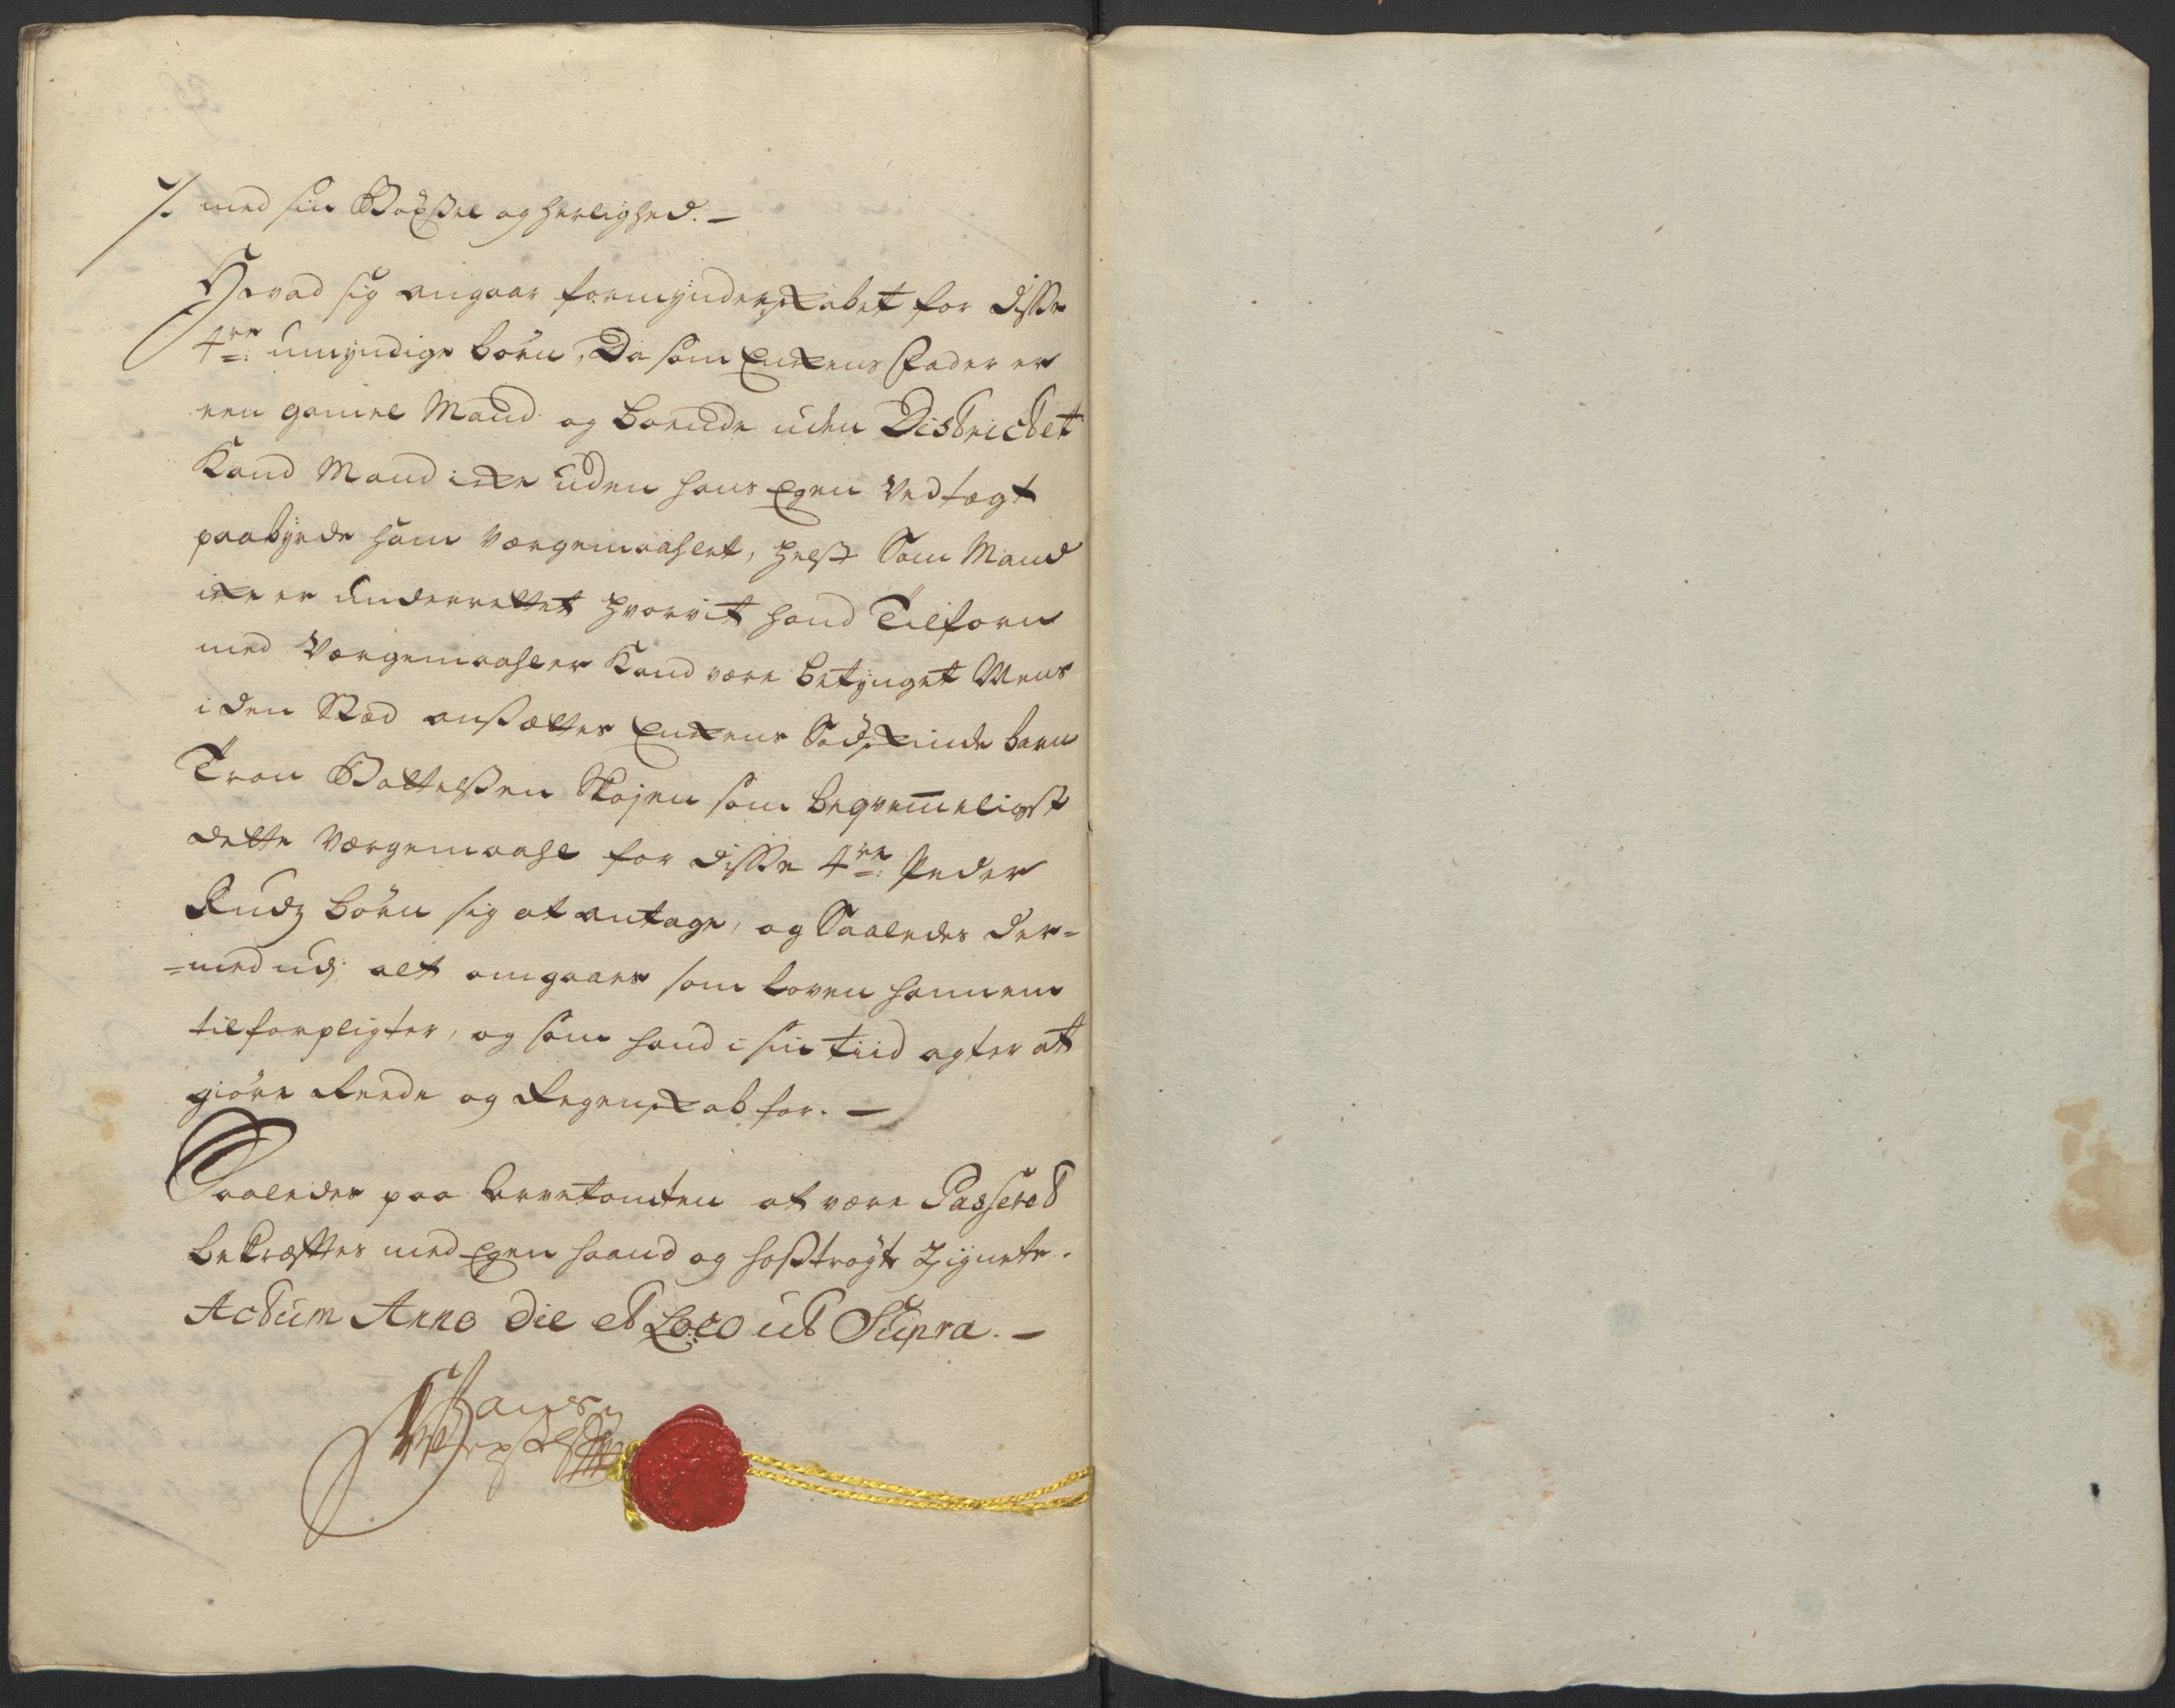 /. med sin Böxsel og herlighed. —
Hvad sig angaar formynderskabet for disse
4re umyndige börn, Da som Enkens Fader er
een gamel Mand og boende uden Districtet
Kand Mand icke uden hans Egen Vedtægt
paabyrde ham værgemaahlet, helst Som Mand
icke er underrettet hvorvit hand Tilforn
med Værgemaahler Kand være betynget Mens
i den Stæd ansættes Enkens Södskinde barn
Tron Bottelsen Skojen som beqvemmeligst
dette Værgemaahl for disse 4re Peder
Rudz börn sig at antage, og Saaledes der=
=med udj alt omgaaes som loven hannem
tilforpligter, og som hand i sin tiid agter at
giöre Reede og Regenskab for. —
Saaledes paa Arvetomten at være Passeret
bekræftes med Egen haand og hoströgte Zignete.
Actum Anno Die et Loco ut Supra. —
Hans